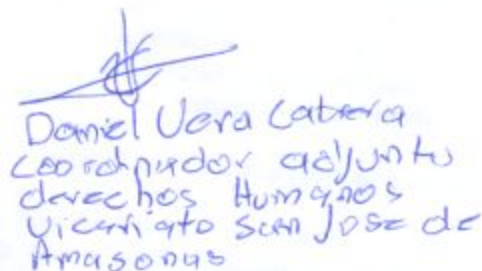 Daniel Vera Cabrera
Coordinador adjunto
derechos Humanos
Vicariato San Jose de
Amasonas